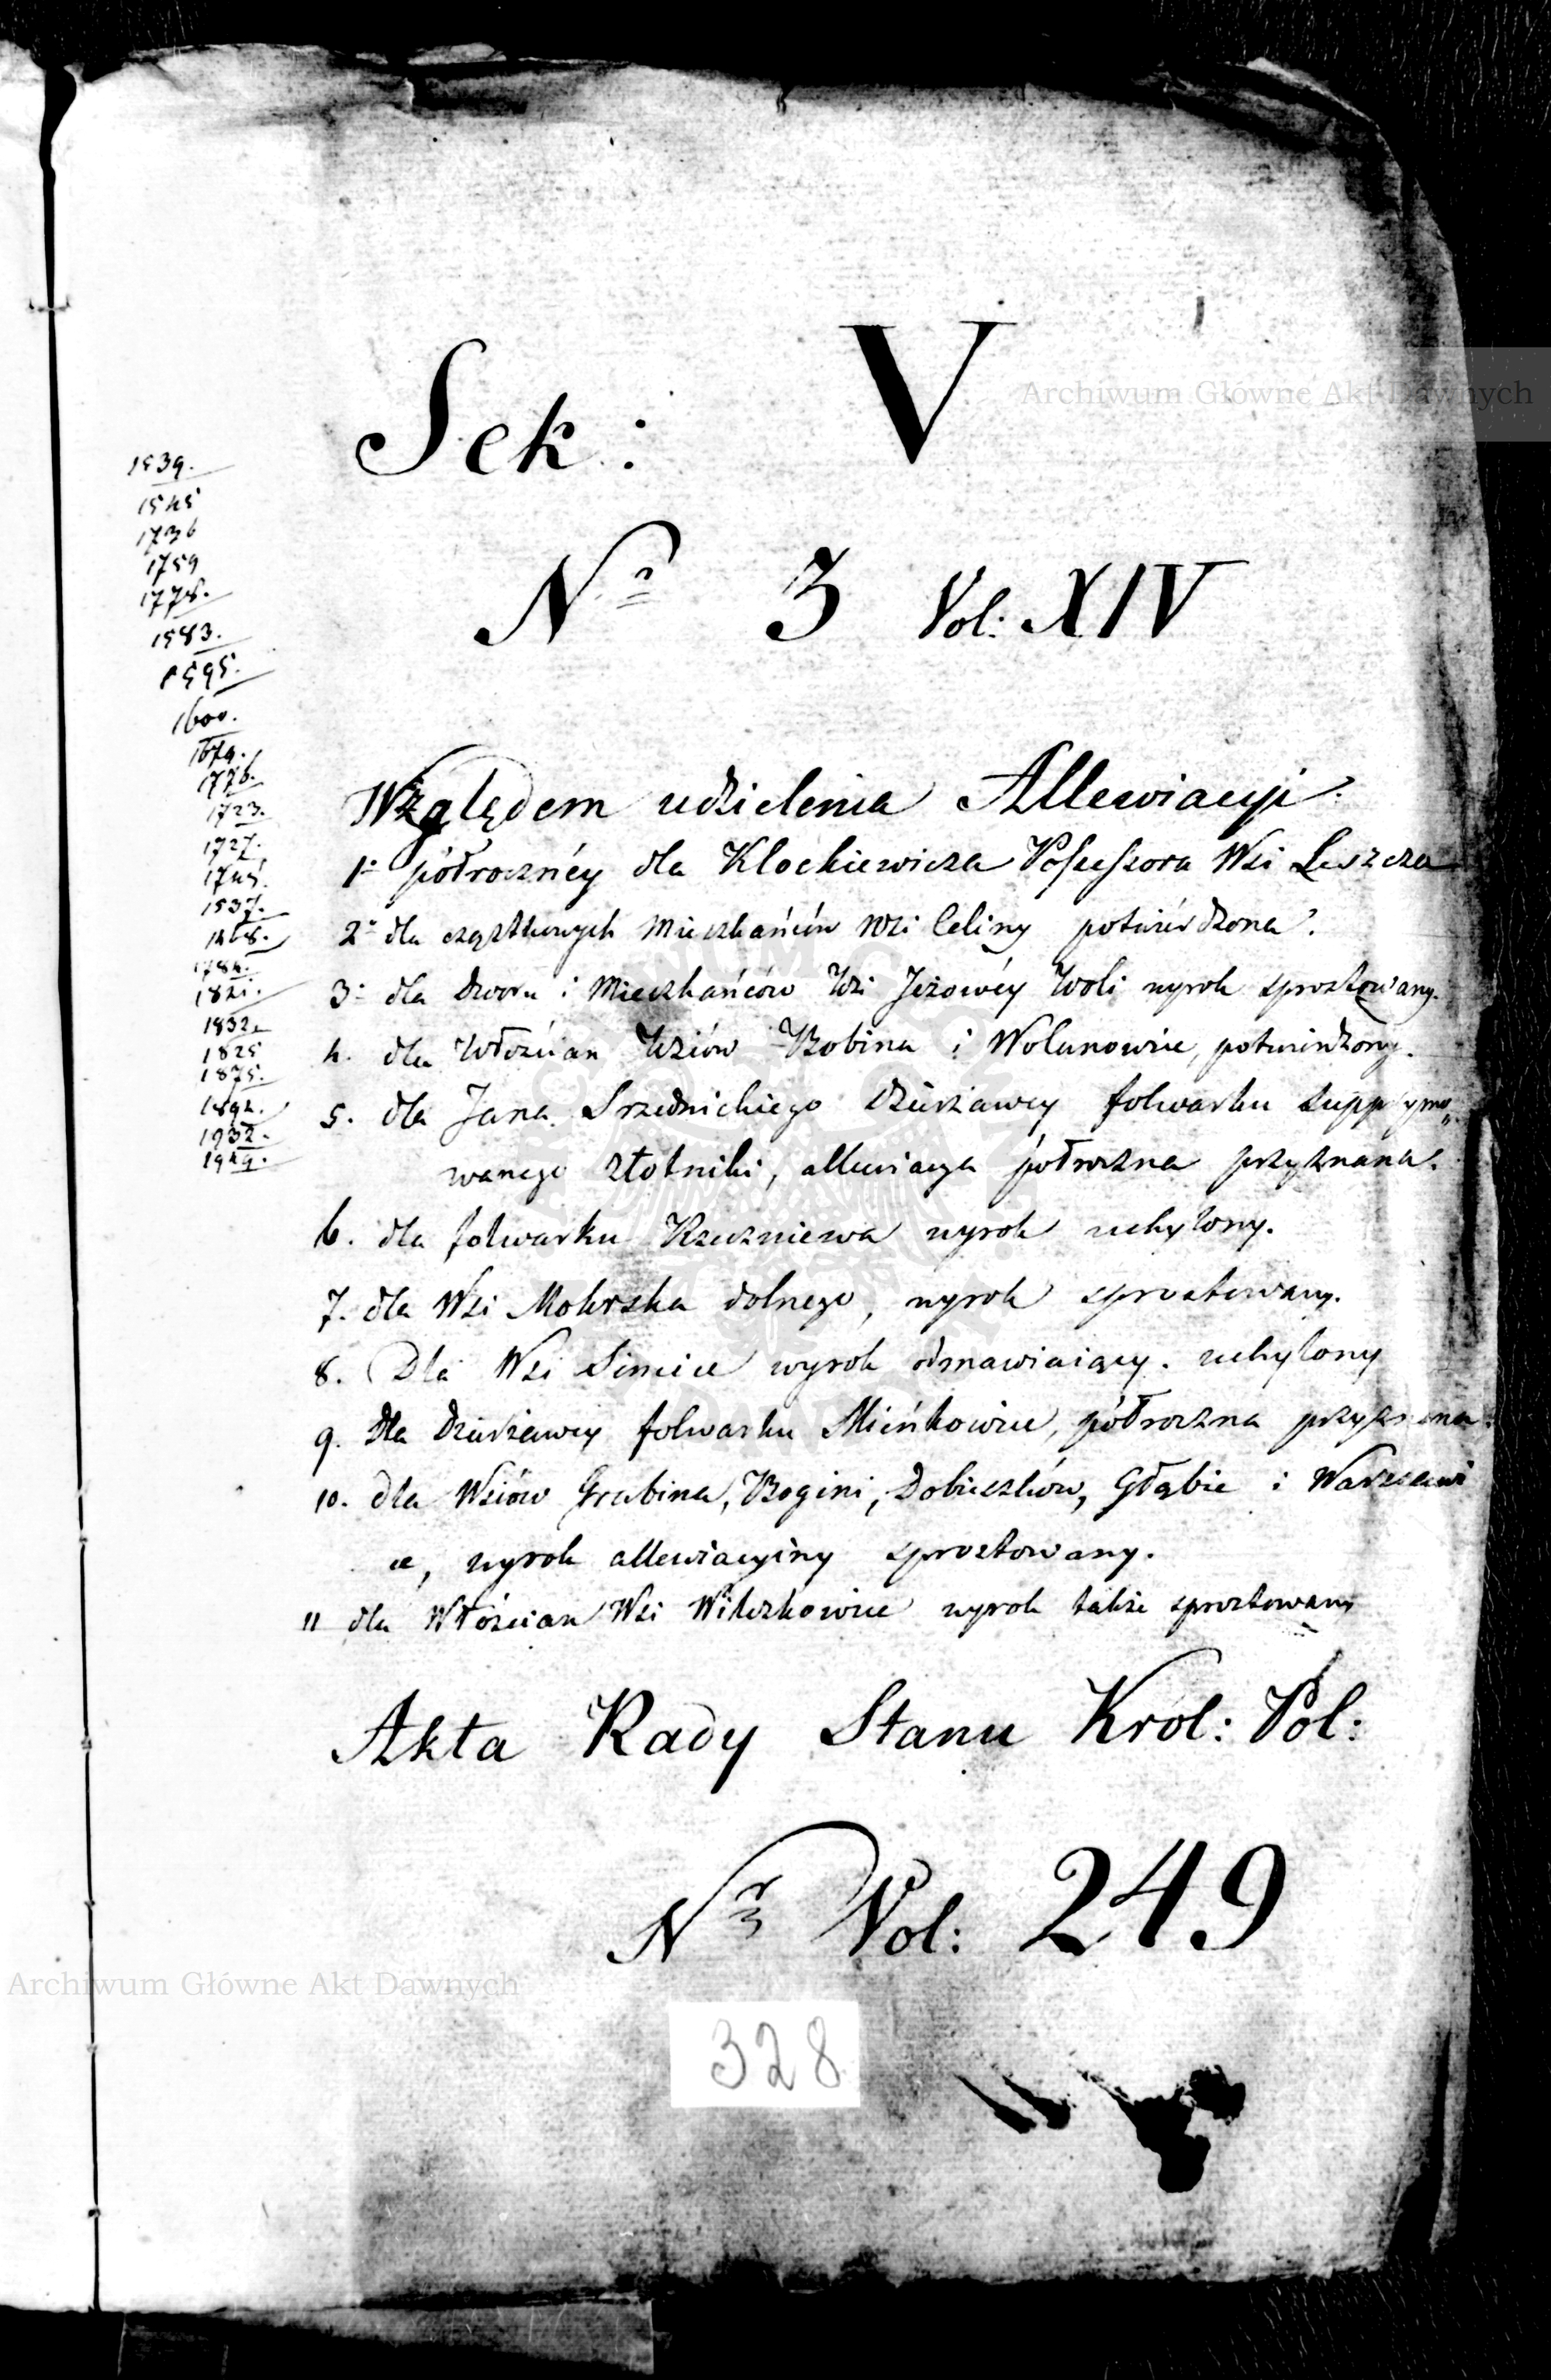 Archiwum Główne Akt Dawnych
Sek: V
Nr 3 Vol: XIV
1539.
1545
1736
1759
1778.
1583.
1595.
1600.
1679.
1776.
1723.
1727.
1745.
1537.
1468.
1784.
1821.
1832.
1825
1875.
1894.
1932.
1949.
Względem udzielenia Allewiacyi.
1º półrocznéy dla Klockiewicza Possessora Wsi Leszcza
2º dla cząstkowych Mieszkańców Wsi Celiny potwierdzona.
3º dla Dworu i Mieszkańców Wsi Jeżowéy Woli wyrok sprostowany.
4. dla Włościan Wsiów Bobina i Wolanowice, potwierdzony.
5. dla Jana Srzednickiego Dzierżawcy folwarku supprymo„
wanego Złotniki, allewiacya półroczna przyznana.
6. dla folwarku Rzeczniewa wyrok uchylony.
7. dla Wsi Mokrska dolnego, wyrok sprostowany.
8. Dla Wsi Simice wyrok odmawiaiący. uchylony
9. Dla Dzierżawcy folwarku Mieńkowice, półroczna przyznana.
10. dla Wsiów Grabina, Bogini, Dobieszków, Głąbie i Warszawi
ce, wyrok allewiacyiny sprostowany.
11 dla Włościan Wsi Wilczkowice wyrok także sprostowany
Akta Rady Stanu Król: Pol:
Nr Vol: 249
Archiwum Główne Akt Dawnych
328